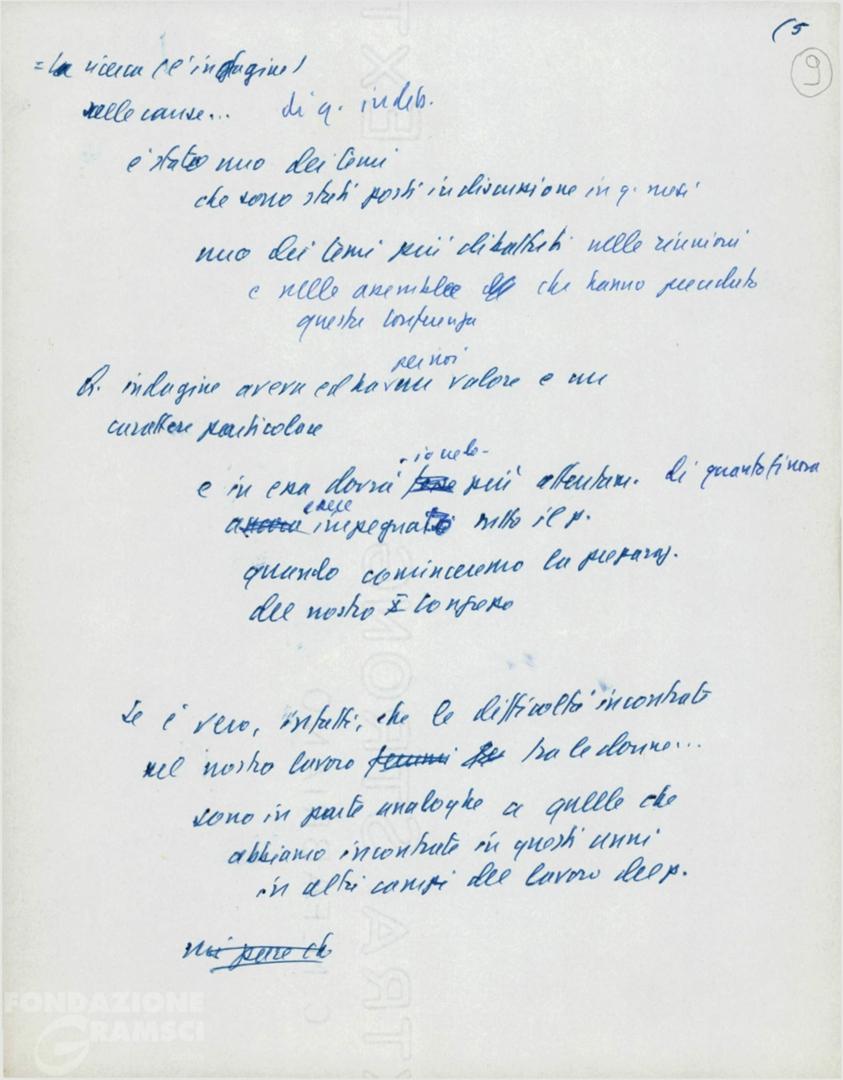 (5
9
= La ricerca (e l'indagine)
sulle cause... di q. indeb.
è stato uno dei temi
che sono stati posti in discussione in q. mesi
uno dei temi più dibattuti nelle riunioni
e nelle assemblee che hanno preceduto
questa conferenza
per noi
Q. indagine aveva ed ha un valore e un
carattere particolare
e in essa dovrà più attentam. di quanto finora
ancora essere impegnato tutto il p.
quando cominceremo la preparaz.
del nostro X Congresso
Se è vero, infatti, che le difficoltà incontrate
nel nostro lavoro tra le donne...
sono in parte analoghe a quelle che
abbiamo incontrate in questi anni
in altri campi del lavoro del p.
mi pare che
FONDAZIONE
GRAMSCI